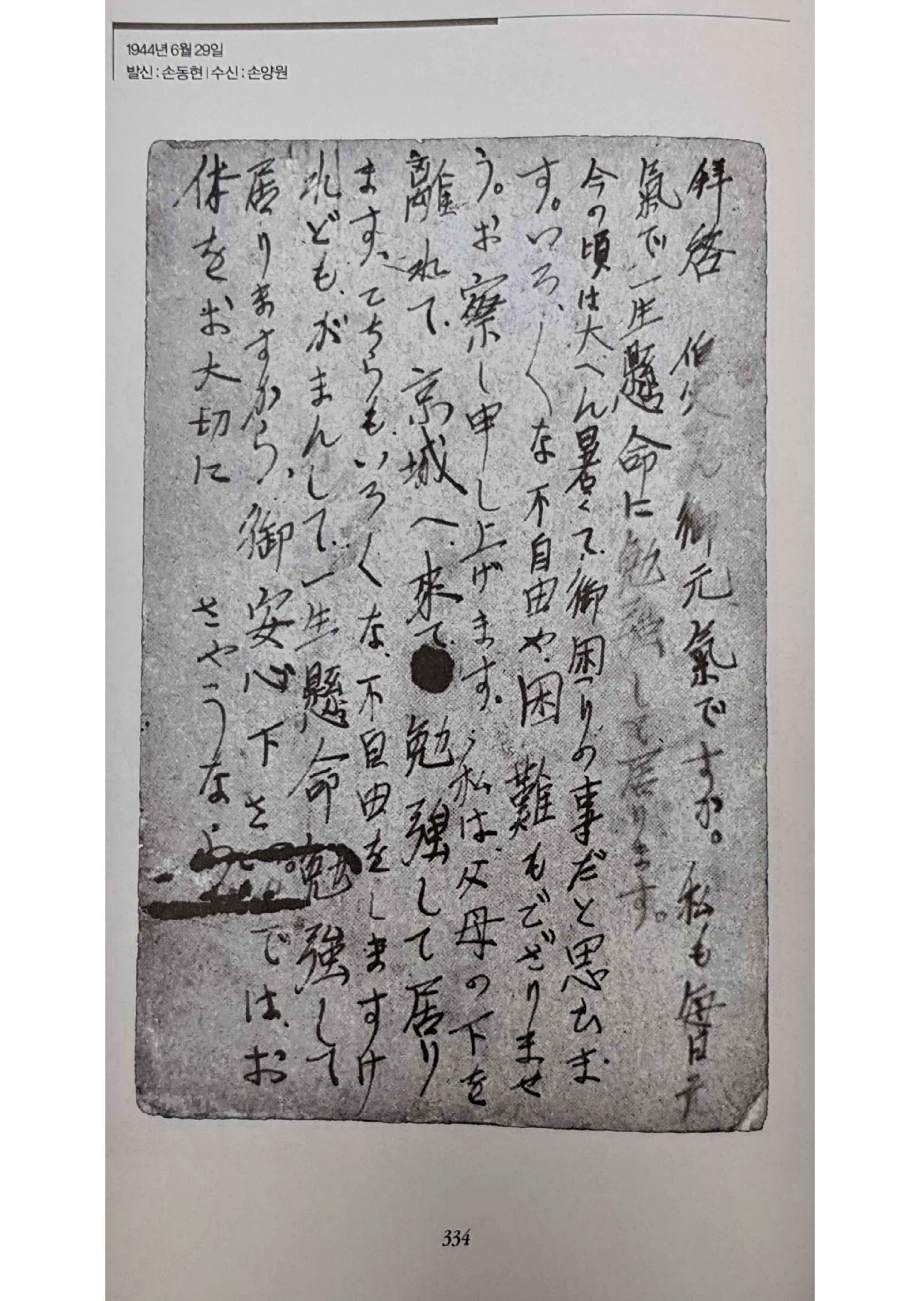 1944년 6월 29일
발신 : 손동현 | 수신 : 손양원
拝啓 伯父さん御元氣ですか。私も毎日元
氣で一生懸命に勉強して居ります。
今の頃は大へん暑くて、御困りの事だと思ひま
す。いろ〳〵な不自由や困難もござりませ
う。お察し申し上げます。私は父母の下を
離れて、京城へ来て 勉強して居り
ます。こちらもいろ〳〵な、不自由をしますけ
れども、がまんして、一生懸命勉強して
居りますから、御安心下さ では、お
体をお大切に さやうなら
334